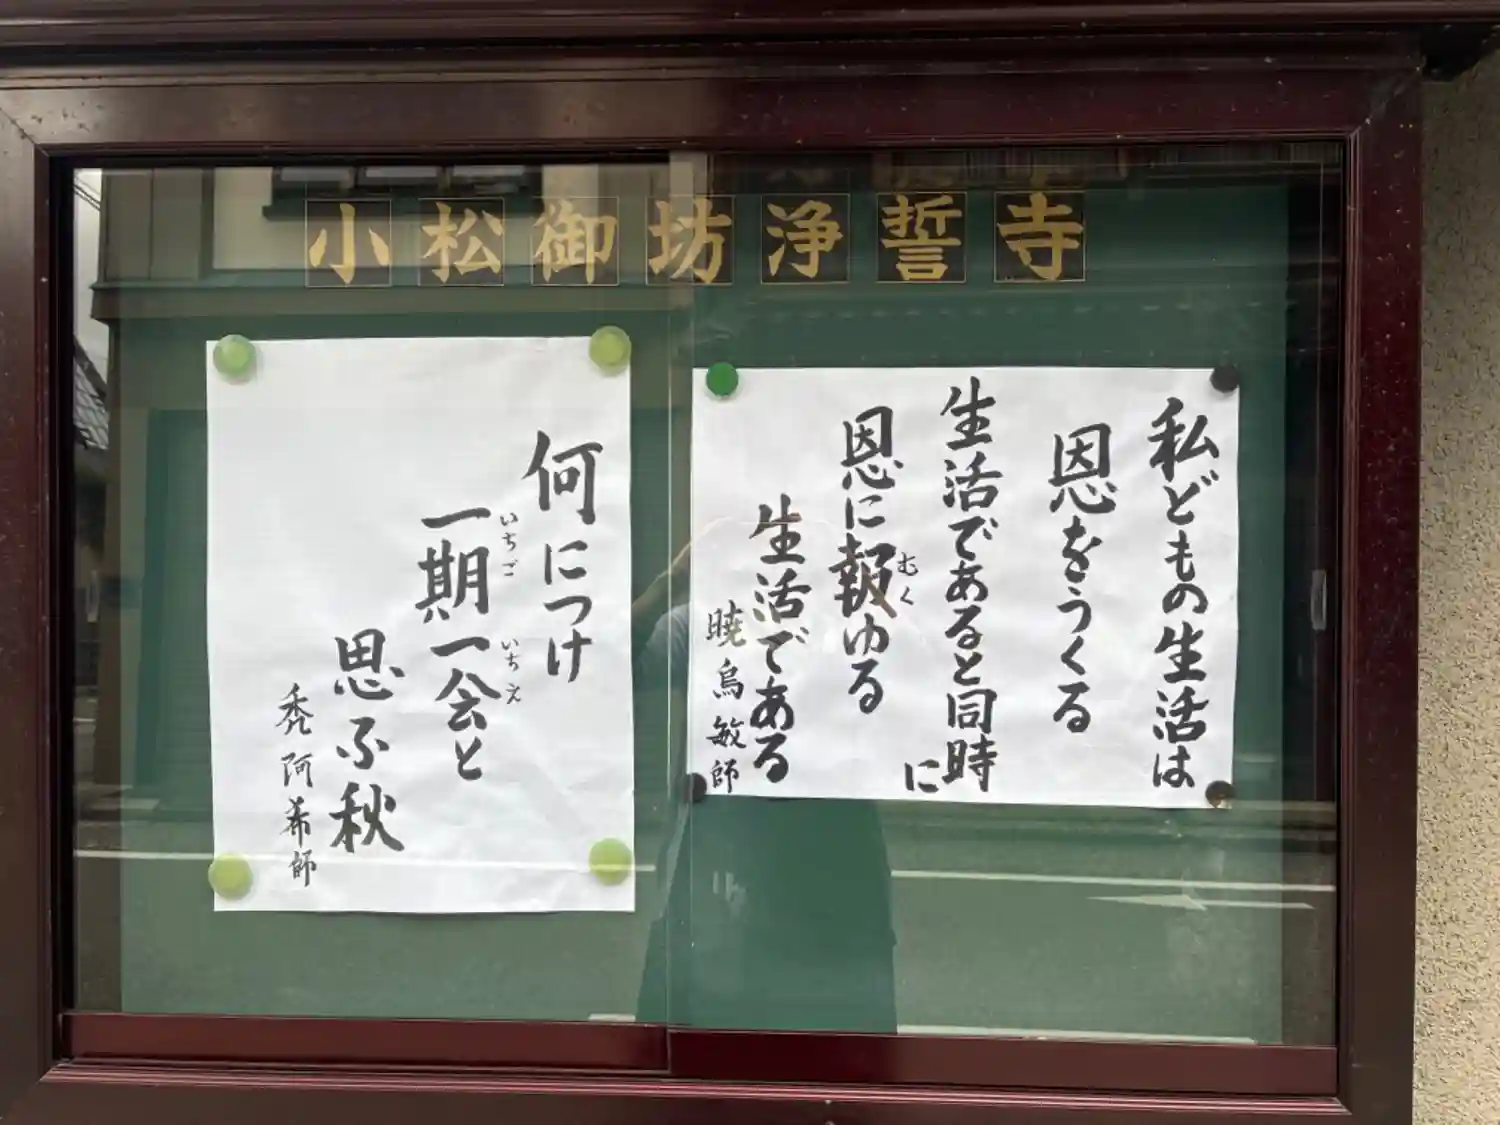 小松御坊浄誓寺
私どもの生活は
恩をうくる
生活であると同時に
恩に報ゆる
むく
生活である
暁烏敏師
何につけ
一期一会と
いちご
いちえ
思ふ秋
禿阿希師